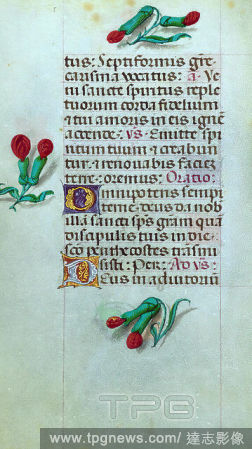 tus: Septiformis gre
carisma vocatus: a. Ve
ni sancte spiritus reple
tuorum corda fidelium
et tui amoris in eis igne
accende: vs. Emitte spi
ritum tuum et creabun
tur: et renovabis faciez
terre: oremus: Oratio:
Omnipotens sempi
terne: deus da nob
illā sancti sps gram quā
discipulis tuis in die
sco penthecostes trāsmi
sisti: Per: Ad vs:
Deus in adiutoriū
TPG
www.tpgnews.com/ 達志影像